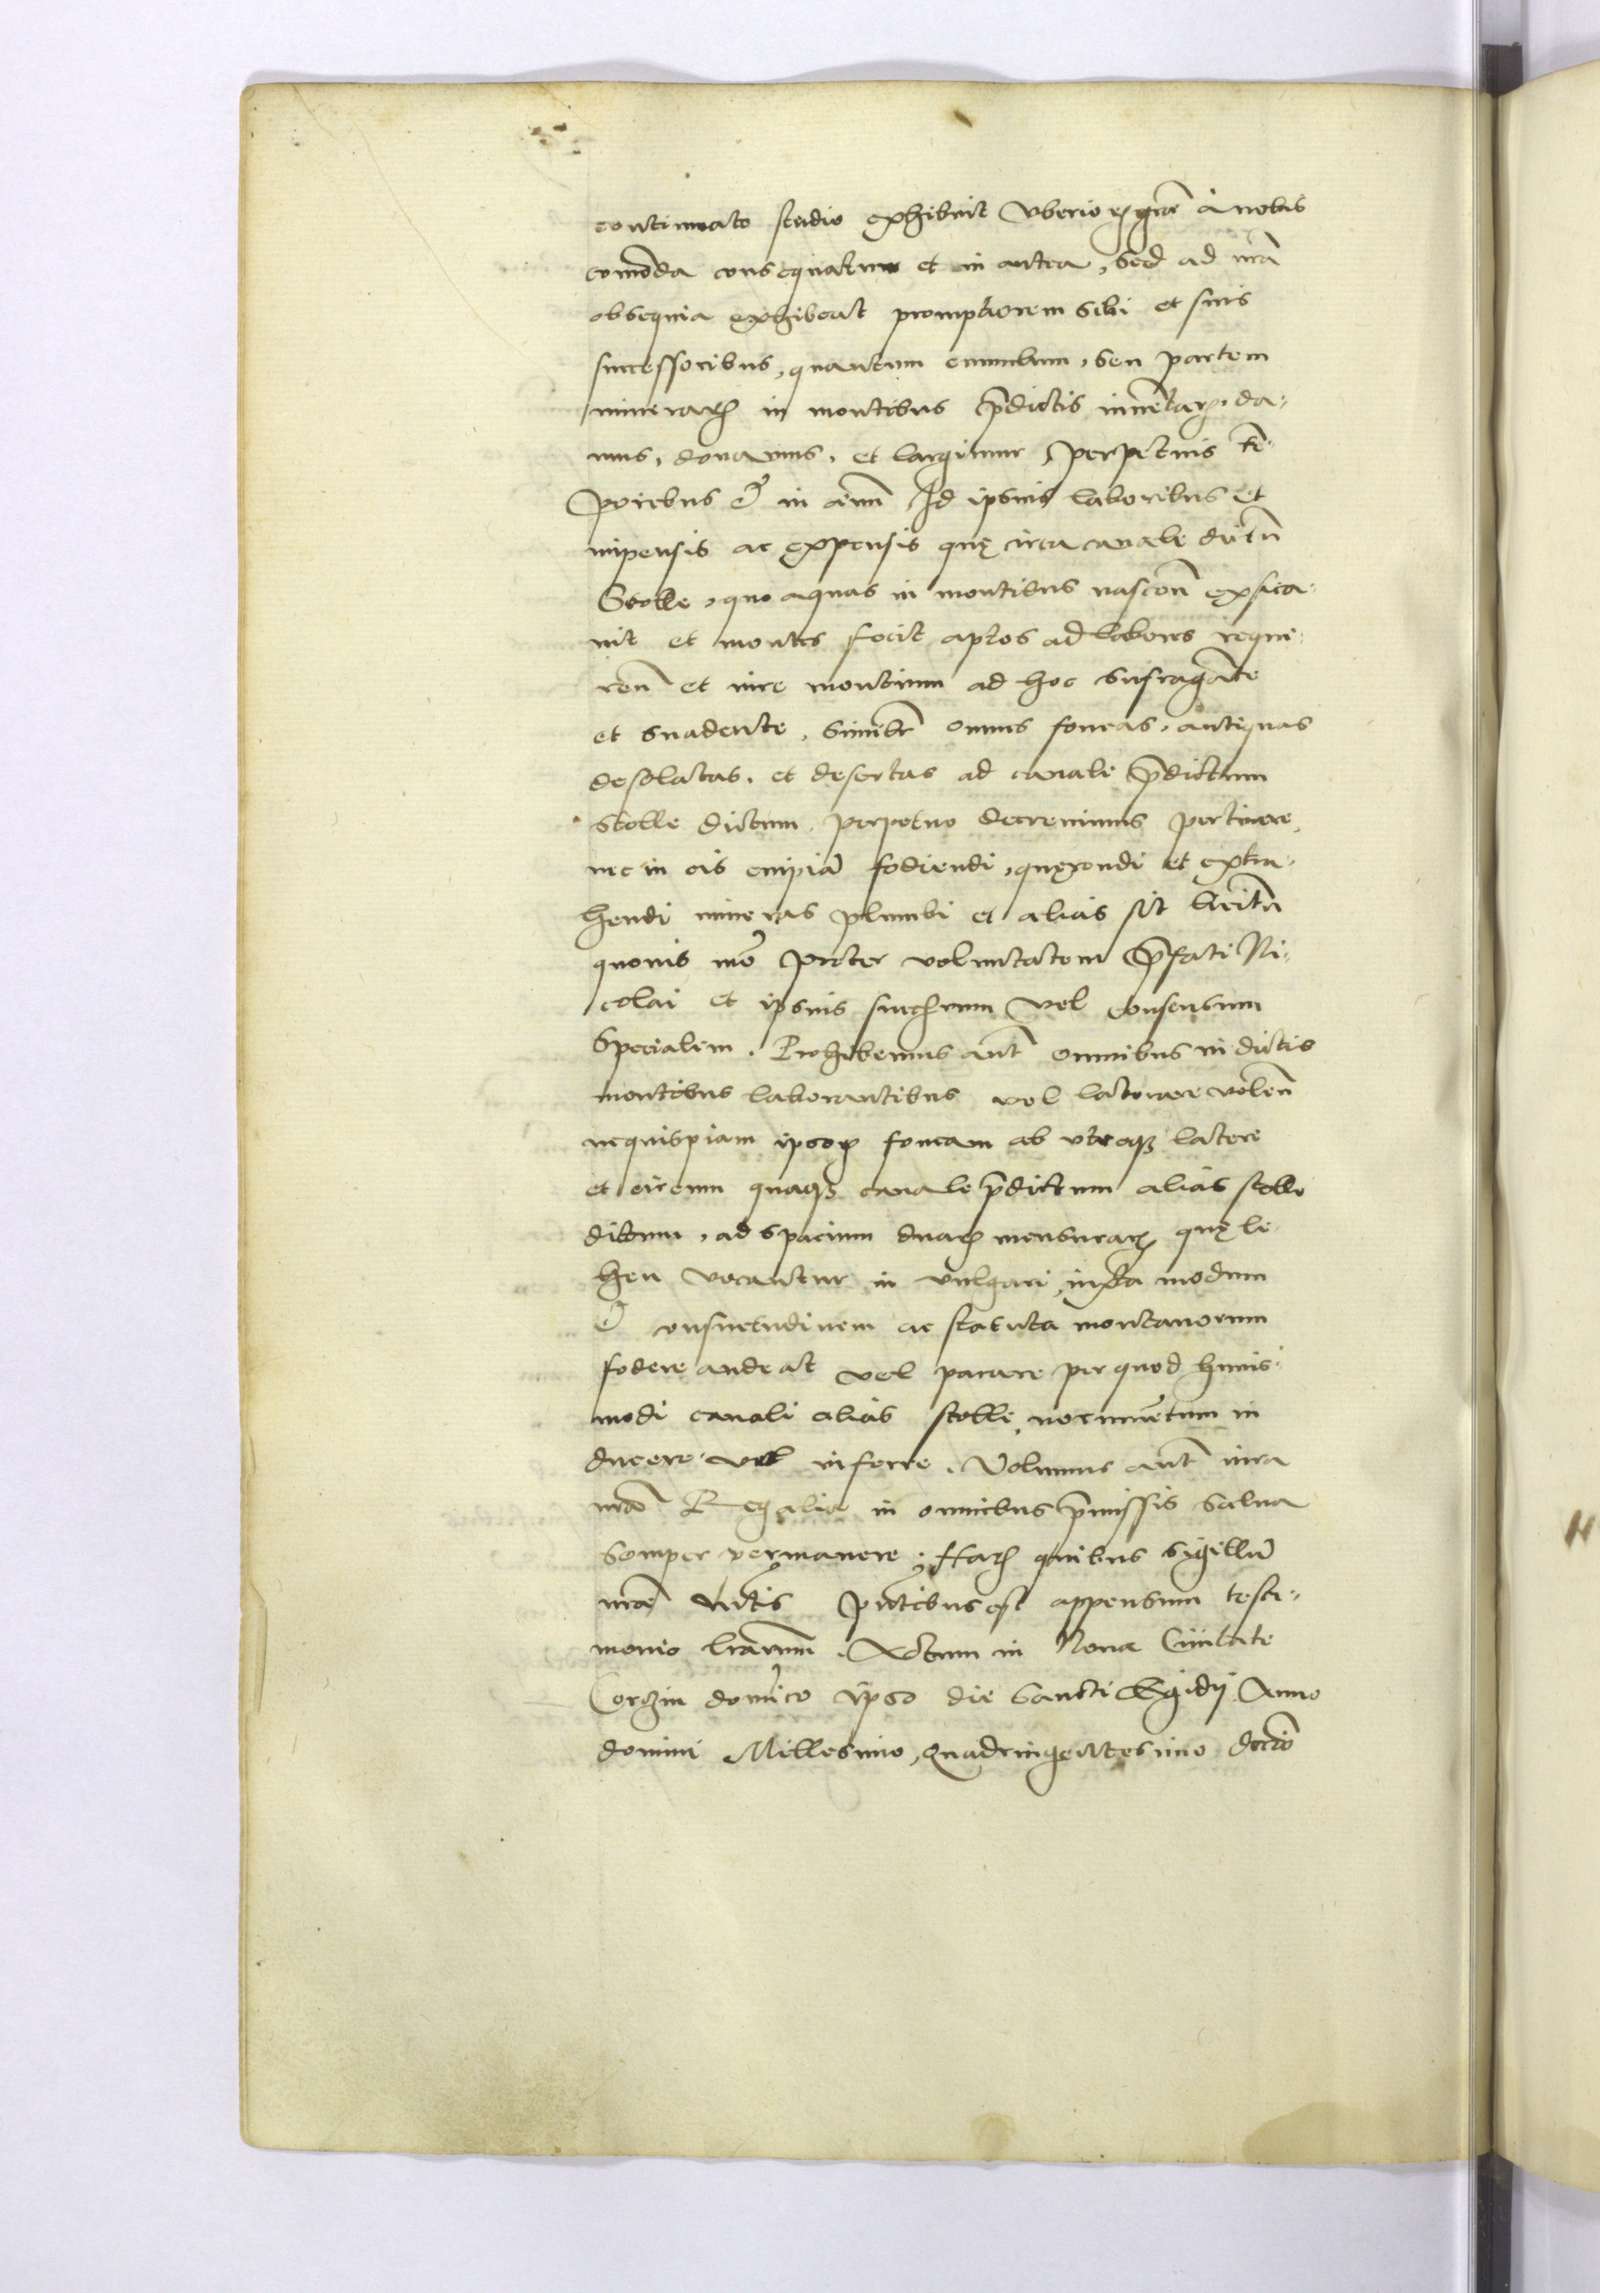 continuato studio exhibuit vberior gr̃ac̃ a nobis
com̃oda consequatur et in antea, Sed ad nr̃a
obsequia exhibeat promptiorem sibi et suis
successoribus, quantum, seu partem
minerarꝝ in montibus p̃dictis inuẽtarꝝ, da-
mus, donamus, et largimur perpetuis tẽ-
poribus & in Id ipsius laboribus et
impensis ac expensis quę circa canale dictũ
Stolle, quo aquas in montibus nascen̄ exsica-
uit et montes fecit aptos ad labores requi-
ren̄ et iure montium ad hoc sufragãte
et suadente, Similr̃ omnes foueas, antiquas
desolatas, et desertas ad canale p̃dictum
stolle dictum, perpetuo decreuimus pertinere,
nec in eis cuipiã fodiendi, quęrendi et extra-
hendi mineras plumbi et alias sit licitũ
quouis mõ preter voluntatem p̃fati Ni-
colai et ipsius succ̃orum vel consensum
Specialem. Prohibemus aut̃ omnibus in dictis
montibus laborantibus vel laborare volen̄
ne quispiam ipsorꝝ foueam ab vtroqꝫ latere
et circum quaqꝫ canale p̃dictum alias stolle
dictum, ad spacium duarꝝ mensurarꝝ quę le-
hen vocantur in vulgari, iuxta modum
& consuetudinem ac statuta montanorum
fodere audeat vel parare per quod huius-
modi canali alias stolle, nocumẽtum in
ducere vel inferre. Volumus aut̃ iura
nr̃a Regalia in omnibus p̃missis salua
semper permanere; Harꝝ quibus sigillũ
nr̃ae p̃ntibus est appensum testi-
monio lr̃arum. Actum in Noua Ciuitate
Corczin domĩco ipso die Sancti Egidij Anno
domini Millesimo, Quadringentesimo decĩo